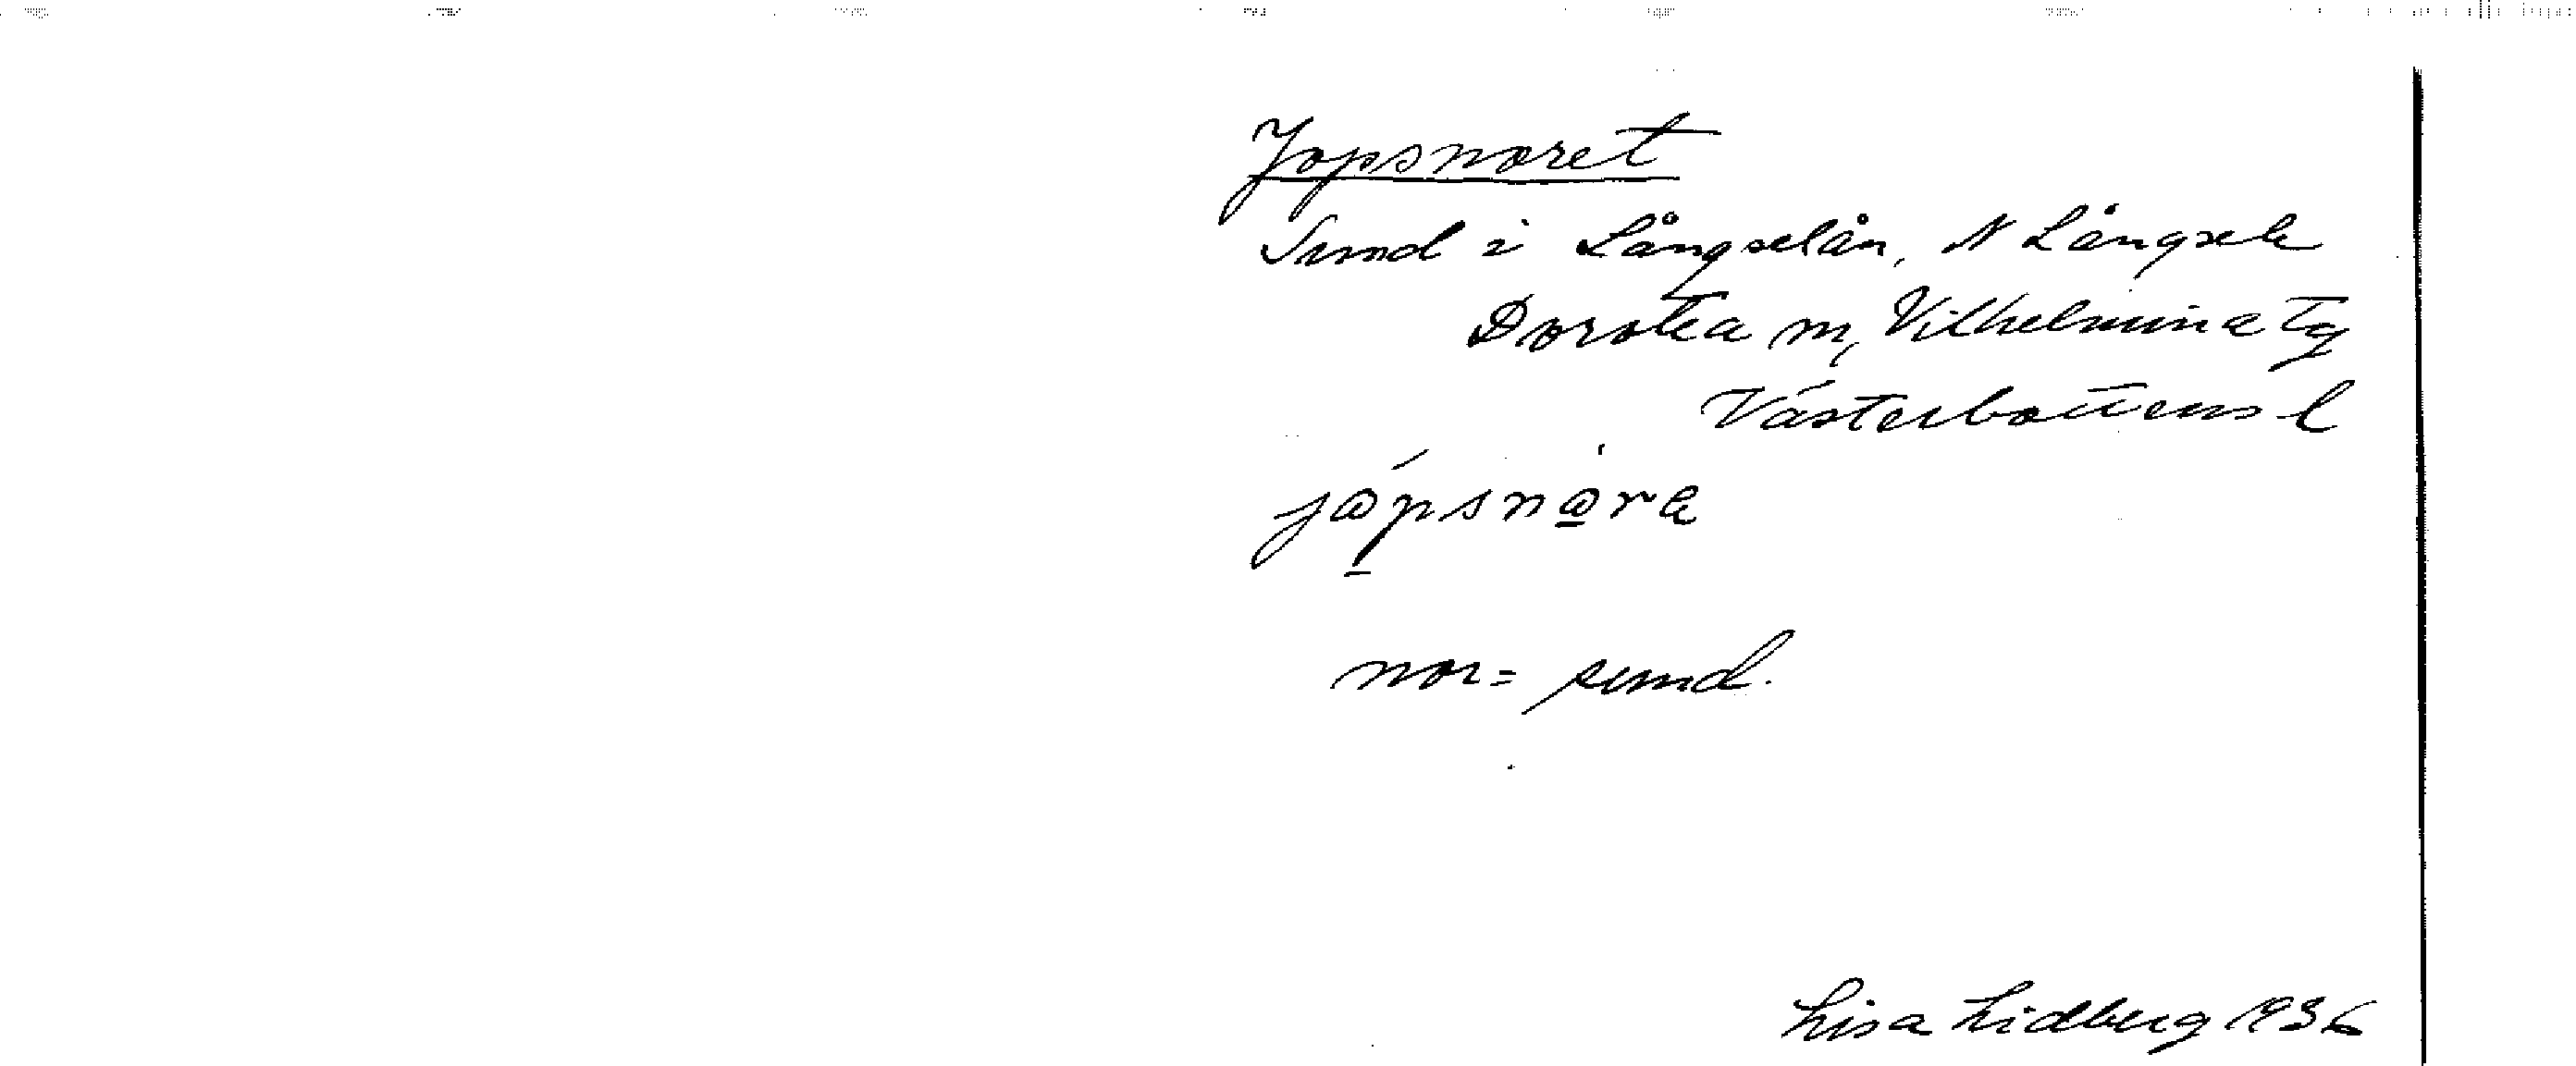 Jopsnoret
Sund i Långselån, N Långsele
Dorotea m, Vilhelmina Tg
Västerbottens l
jápsnára
nor = sund.
Lisa Lidberg 1936